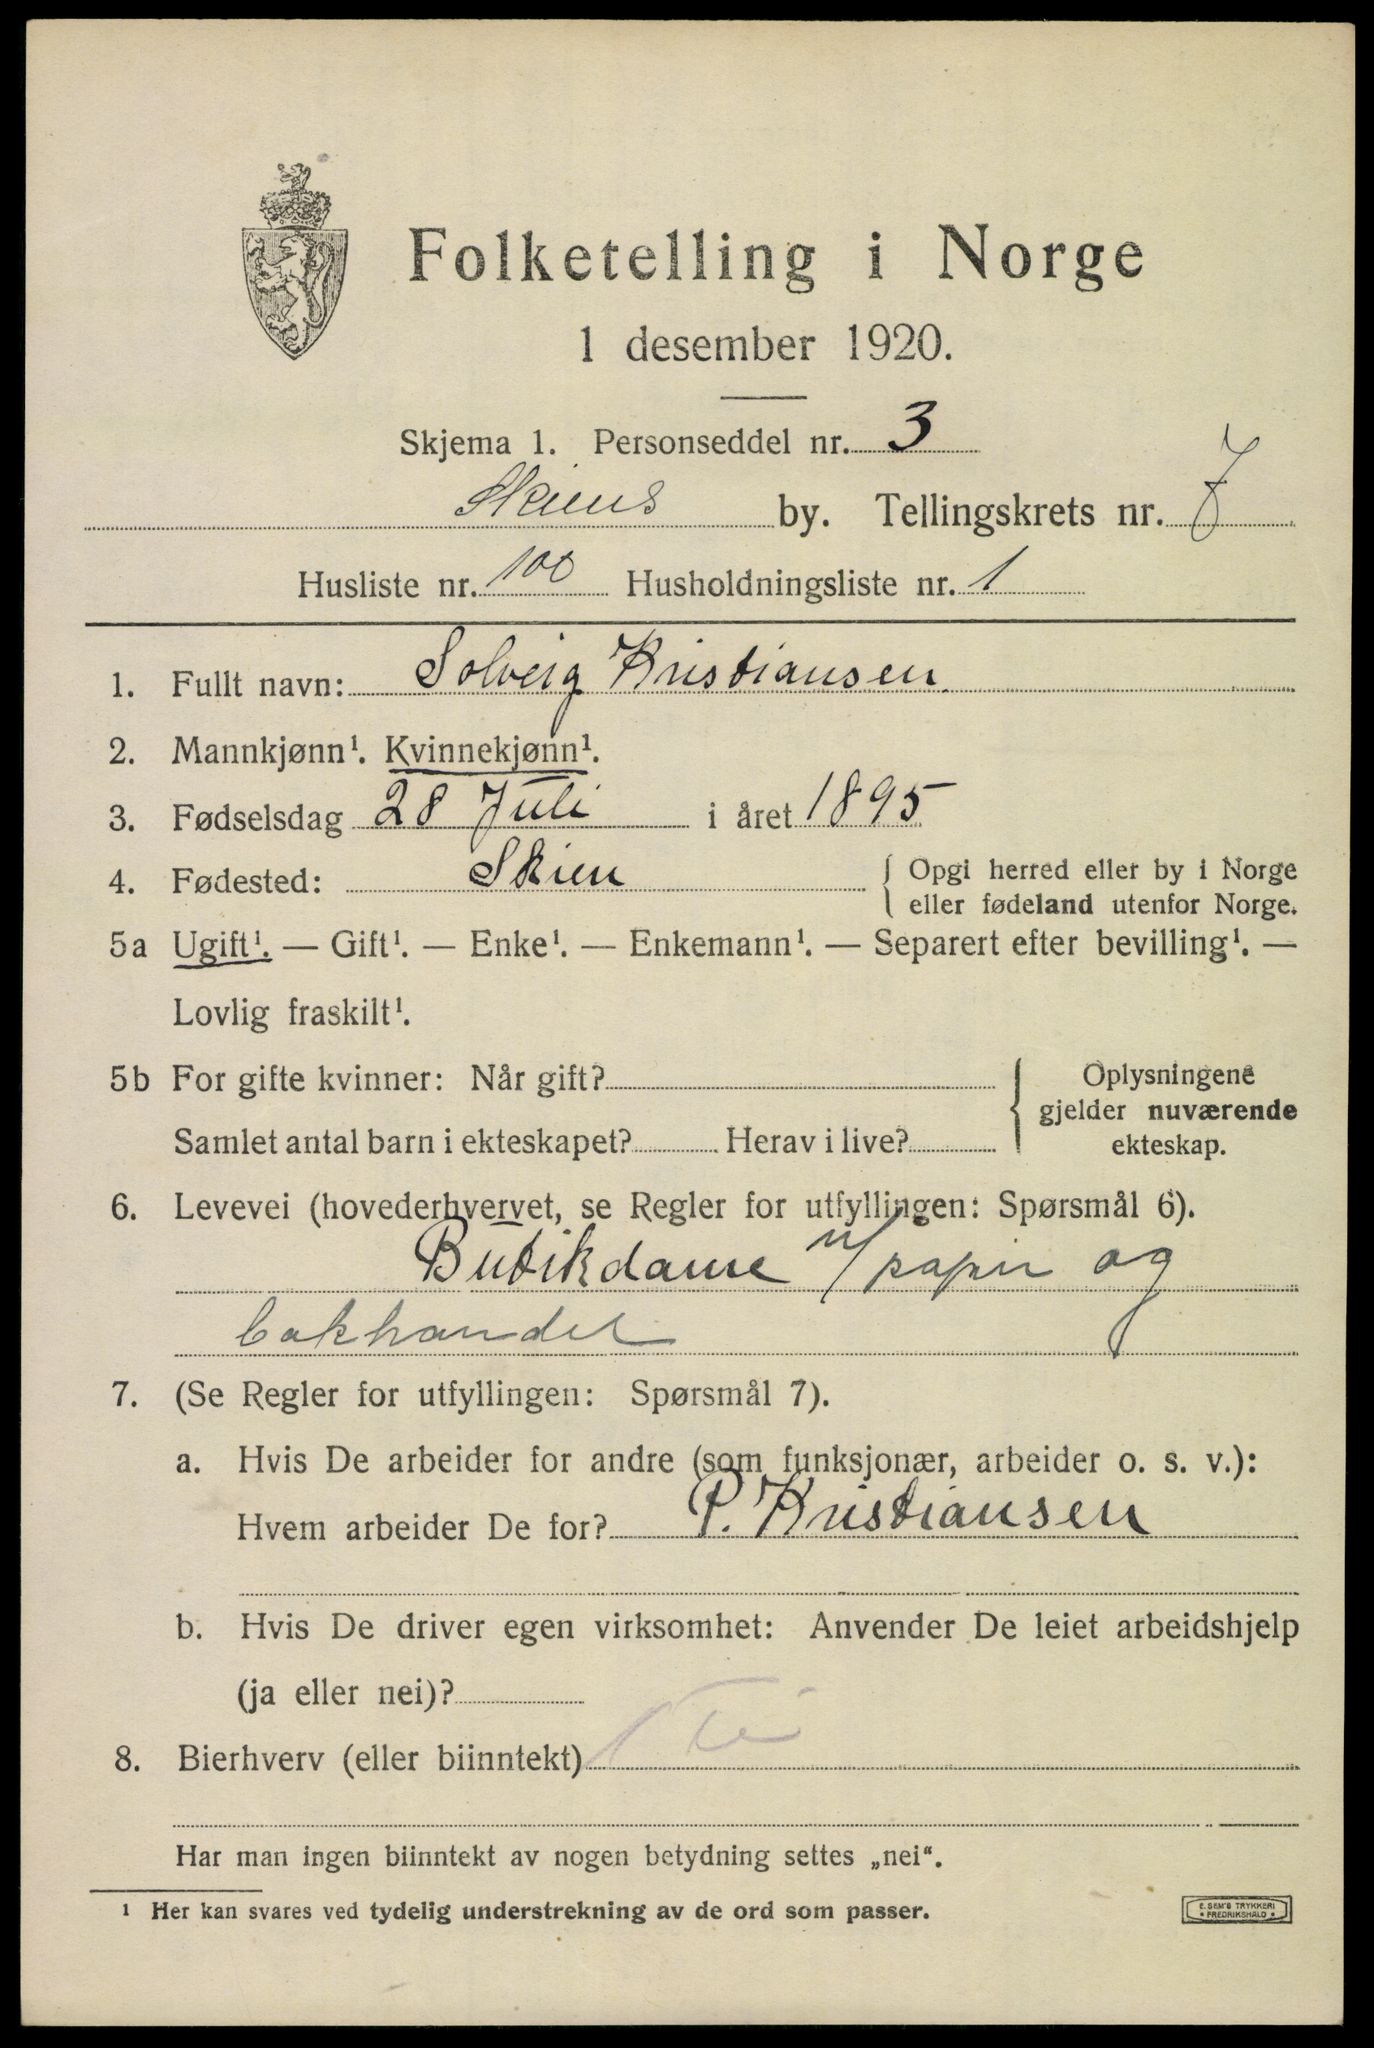 Folketelling i Norge
1 desember 1920.
Skjema 1. Personseddel nr. 3
Skiens by. Tellingskrets nr. 7
Husliste nr. 100 Husholdningsliste nr. 1
1. Fullt navn: Solveig Kristiansen
2. Mannkjønn¹. Kvinnekjønn¹.
3. Fødselsdag 28 Juli i året 1895
4. Fødested: Skien { Opgi herred eller by i Norge
eller fødeland utenfor Norge.
5a Ugift¹. — Gift¹. — Enke¹. — Enkemann¹. — Separert efter bevilling¹. —
Lovlig fraskilt¹.
5b For gifte kvinner: Når gift? { Oplysningene
gjelder nuværende
Samlet antal barn i ekteskapet? Herav i live? ekteskap.
6. Levevei (hovederhvervet, se Regler for utfyllingen: Spørsmål 6).
Butikdame v/papir og
bokhandel
7. (Se Regler for utfyllingen: Spørsmål 7).
a. Hvis De arbeider for andre (som funksjonær, arbeider o. s. v.):
Hvem arbeider De for? P. Kristiansen
b. Hvis De driver egen virksomhet: Anvender De leiet arbeidshjelp
(ja eller nei)?
8. Bierhverv (eller biinntekt) Nei
Har man ingen biinntekt av nogen betydning settes „nei“.
¹ Her kan svares ved tydelig understrekning av de ord som passer.
E. SEM'S TRYKKERI
• FREDRIKSHALD •